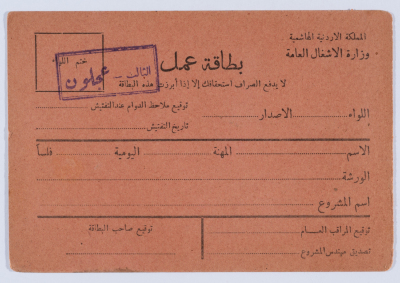 المملكة الاردنية الهاشمية
وزارة الاشغال العامة
بطاقة عمل
ختم اللواء
عجلون
لا يدفع الصراف استحقاقك إلا إذا أبرزت هذه البطاقة
اللواء الاصدار
توقيع ملاحظ الدوام عند التفتيش
تاريخ التفتيش
الاسم المهنة اليومية فلساً
الورشة
اسم المشروع
توقيع المراقب العام
تصديق مهندس المشروع
توقيع صاحب البطاقة